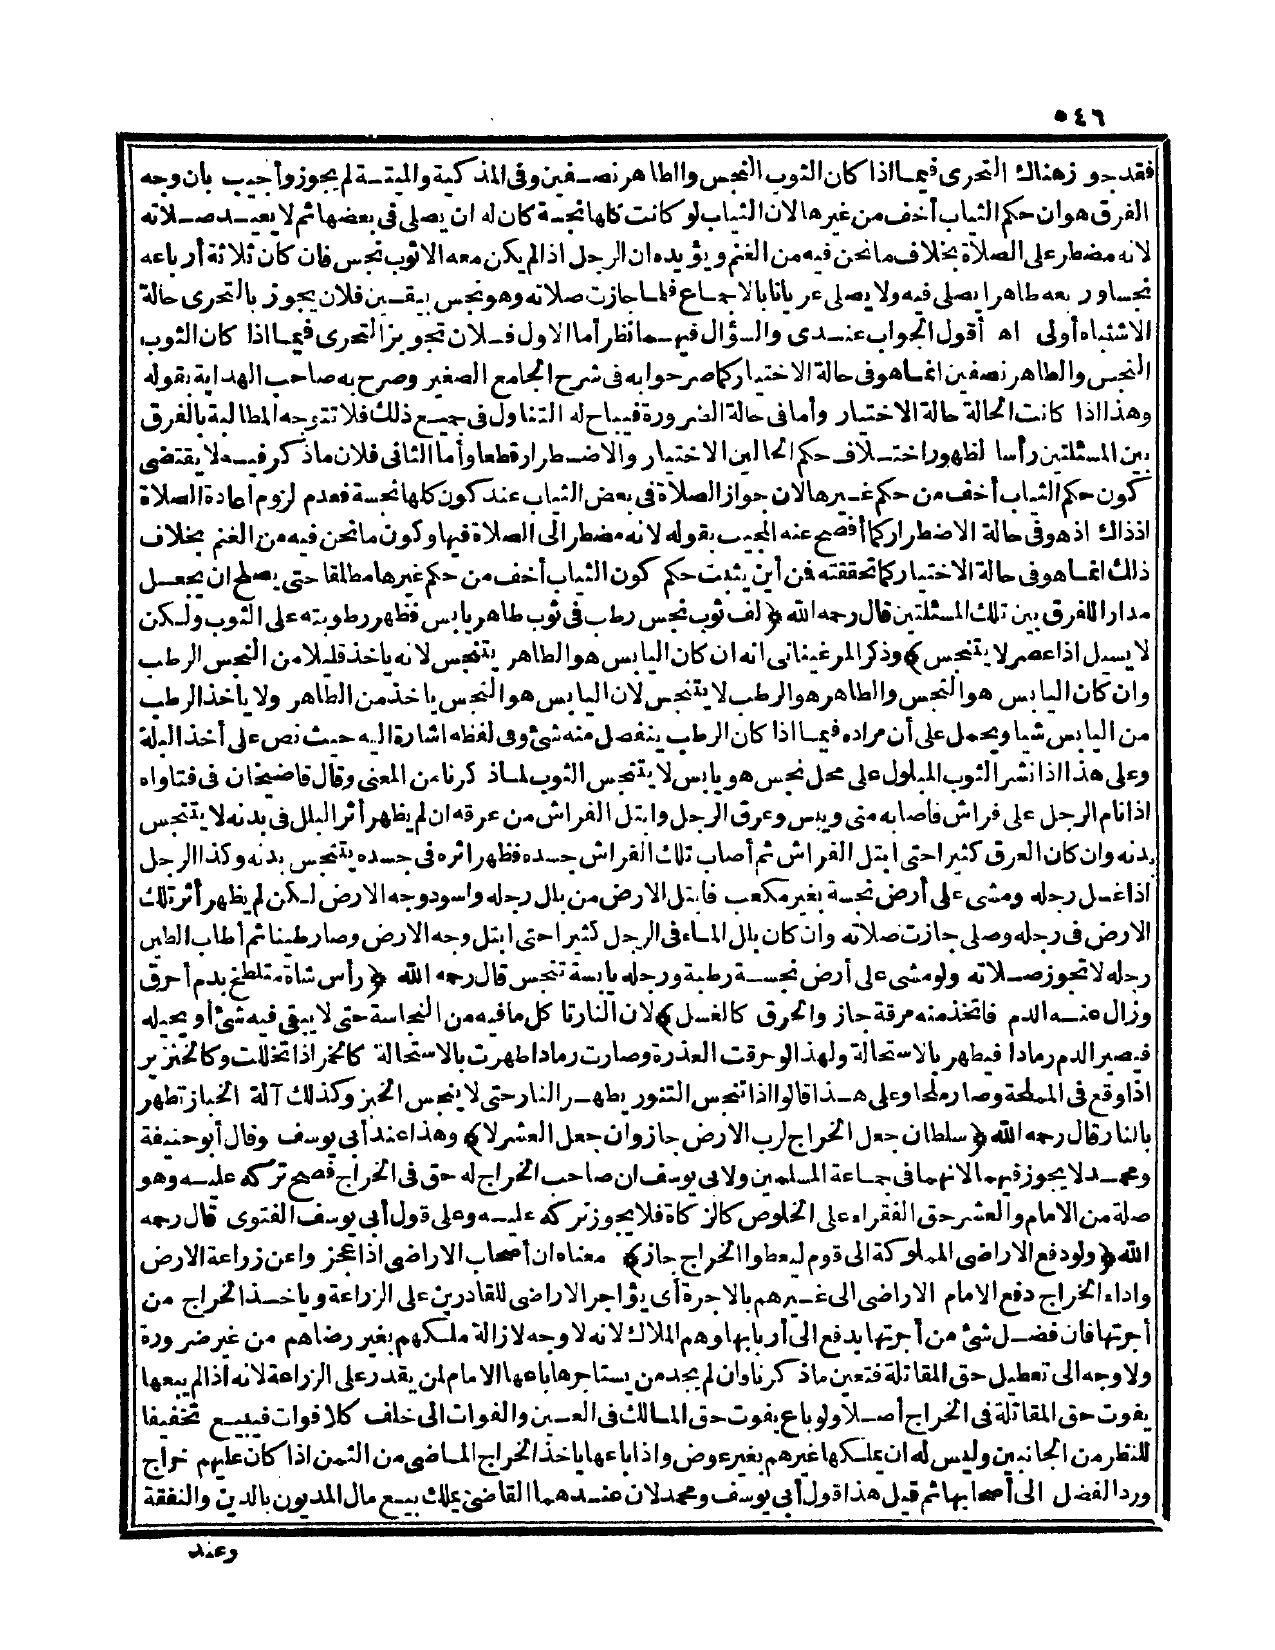 ٥٤٦
فقد جوزهناك التحرى فيما اذا كان الثوب النجس والطاهر نصفين وفى المذكية والميتة لم يجوز وأجيب بان وجه
الفرق هو ان حكم الثياب أخف من غيرها لان الثياب لو كانت كلها نجسة كان له ان يصلى فى بعضها ثم لا يعيد صلاته
لانه مضطر على الصلاة بخلاف ما نحن فيه من الغنم ويؤيده ان الرجل اذا لم يكن معه الا ثوب نجس فان كان ثلاثة أرباعه
نجسا وربعه طاهرا يصلى فيه ولا يصلى عريانا بالاجماع فلما جازت صلاته وهو نجس بيقين فلان يجوز بالتحرى حالة
الاشتباه أولى اه أقول الجواب عندى والسؤال فيهما نظر أما الاول فلان تجويز التحرى فيما اذا كان الثوب
النجس والطاهر نصفين انما هو فى حالة الاختيار كما صرحوا به فى شرح الجامع الصغير وصرح به صاحب الهداية بقوله
وهذا اذا كانت الحالة حالة الاختيار وأما فى حالة الضرورة فيباح له التناول فى جميع ذلك فلا تتوجه المطالبة بالفرق
بين المسئلتين رأسا لظهور اختلاف حكم الحالين الاختيار والاضطرار قطعا وأما الثانى فلان ما ذكر فيه لا يقتضى
كون حكم الثياب أخف من حكم غيرها لان جواز الصلاة فى بعض الثياب عند كون كلها نجسة فعدم لزوم اعادة الصلاة
اذذاك اذ هو فى حالة الاضطرار كما أفصح عنه المجيب بقوله لانه مضطر الى الصلاة فيها وكون ما نحن فيه من الغنم بخلاف
ذلك انما هو فى حالة الاختيار كما تحققته فن أين يثبت حكم كون الثياب أخف من حكم غيرها مطلقا حتى يصلح ان يجعل
مدار اللفرق بين تلك المسئلتين قال رحمه الله ﴿لف ثوب نجس رطب فى ثوب طاهر يابس فظهر رطوبته على الثوب ولكن
لا يسيل اذا عصر لا يتنجس﴾ وذكر المرغينانى انه ان كان اليابس هو الطاهر يتنجس لانه ياخذ قليلا من النجس الرطب
وان كان اليابس هو النجس والطاهر هو الرطب لا يتنجس لان اليابس هو النجس ياخذ من الطاهر ولا ياخذ الرطب
من اليابس شيا ويحمل على أن مراده فيما اذا كان الرطب ينفصل منه شئ وفى لفظه اشارة اليه حيث نص على أخذ البلة
وعلى هذا اذا نشر الثوب المبلول على محل نجس هو يابس لا يتنجس الثوب لما ذكرنا من المعنى وقال قاضيخان فى فتاواه
اذا نام الرجل على فراش فأصابه منى ويبس وعرق الرجل وابتل الفراش من عرقه ان لم يظهر أثر البلل فى بدنه لا يتنجس
بدنه وان كان العرق كثيرا حتى ابتل الفراش ثم أصاب تلك الفراش جسده فظهر اثره فى جسده يتنجس بدنه وكذا الرجل
اذا غسل رجله ومشى على أرض نجسة بغير مكعب فابتل الارض من بال رجله واسود وجه الارض لكن لم يظهر أثر تلك
الارض فى رجله وصلى جازت صلاته وان كان بال الماء فى الرجل كثيرا حتى ابتل وجه الارض وصار طينا ثم أطاب الطين
رجله لا تجوز صلاته ولو مشى على أرض نجسة رطبة ورجله يابسة تنجس قال رحمه الله ﴿رأس شاة متلطخ بدم أحرق
وزال عنه الدم فاتخذ منه مرقة جاز والحرق كالغسل﴾ لان النار تا كل ما فيه من النجاسة حتى لا يبقى فيه شئ أو يحيله
فيصير الدم رمادا فيطهر بالاستحالة ولهذا لو حرقت العذرة وصارت رمادا طهرت بالاستحالة كالخمر اذا تخللت وكالخنزير
اذا وقع فى المملحة وصار ملحا وعلى هذا قالوا اذا تنجس التنور يطهر بالنار حتى لا ينجس الخبز وكذلك آلة الخباز تطهر
بالنار قال رحمه الله ﴿سلطان جعل الخراج لرب الارض جاز وان جعل العشر لا﴾ وهذا عند أبى يوسف وقال أبو حنيفة
ومحمد لا يجوز فيهما لانهما فى جماعة المسلمين ولابى يوسف ان صاحب الخراج له حق فى الخراج فصح تركه عليه وهو
صلة من الامام والعشر حق الفقراء على الخلوص كالزكاة فلا يجوز تركه عليه وعلى قول أبى يوسف الفتوى قال رحمه
الله ﴿ولو دفع الاراضى المملوكة الى قوم ليعطوا الخراج جاز﴾ معناه ان أصحاب الاراضى اذا عجزوا عن زراعة الارض
واداء الخراج دفع الامام الاراضى الى غيرهم بالاجرة أى يؤاجر الاراضى للقادرين على الزراعة وياخذ الخراج من
أجرتها فان فضل شئ من أجرتها يدفع الى أربابها وهم الملاك لانه لا وجه لازالة ملكهم بغير رضاهم من غير ضرورة
ولا وجه الى تعطيل حق المقاتلة فتعين ما ذكرنا وان لم يجد من يستاجرها باعها الامام لمن يقدر على الزراعة لانه اذا لم يبعها
يفوت حق المقاتلة فى الخراج أصلا ولو باع يفوت حق المالك فى العين والفوات الى خلف كلا فوات فيبيع تخفيفا
للنظر من الجانبين وليس له ان يملكها غيرهم بغير عوض واذا باعها ياخذ الخراج الماضى من الثمن اذا كان عليهم خراج
ورد الفضل الى أصحابها ثم قيل هذا قول أبى يوسف ومحمد لان عندهما القاضى يملك بيع مال المديون بالدين والنفقة
وعند